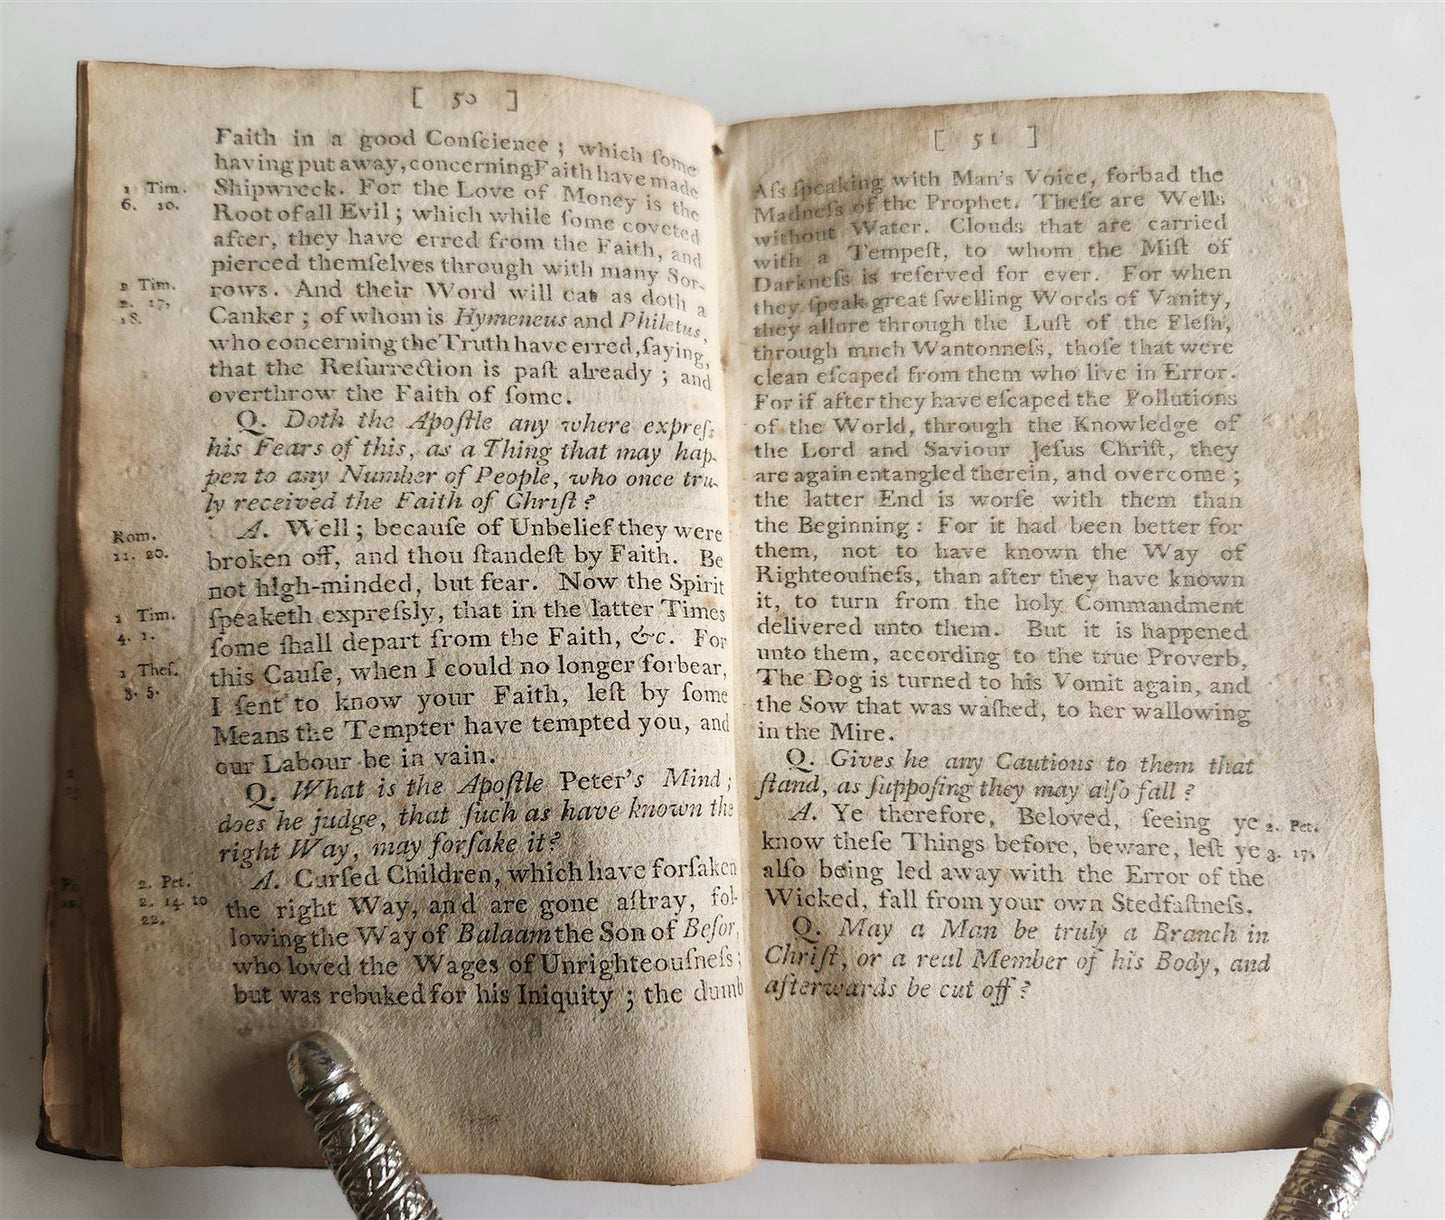 [ 50 ]
Faith in a good Conſcience ; which ſome
having put away, concerning Faith have made
1 Tim. Shipwreck. For the Love of Money is the
6. 10. Root of all Evil ; which while ſome coveted
after, they have erred from the Faith, and
pierced themſelves through with many Sor-
2 Tim. rows. And their Word will eat as doth a
2. 17, Canker ; of whom is Hymeneus and Philetus,
18. who concerning the Truth have erred, ſaying,
that the Reſurrection is paſt already ; and
overthrow the Faith of ſome.
Q. Doth the Apoſtle any where expreſs
his Fears of this, as a Thing that may hap-
pen to any Number of People, who once tru-
ly received the Faith of Chriſt ?
Rom. A. Well ; becauſe of Unbelief they were
11. 20. broken off, and thou ſtandeſt by Faith. Be
not high-minded, but fear. Now the Spirit
1 Tim. ſpeaketh expreſsly, that in the latter Times
4. 1. ſome ſhall depart from the Faith, &c. For
1 Theſ. this Cauſe, when I could no longer forbear,
3. 5. I ſent to know your Faith, leſt by ſome
Means the Tempter have tempted you, and
our Labour be in vain.
Q. What is the Apoſtle Peter's Mind ;
does he judge, that ſuch as have known the
right Way, may forſake it?
2. Pet. A. Curſed Children, which have forſaken
2. 14. to the right Way, and are gone aſtray, fol-
22. lowing the Way of Balaam the Son of Beſor,
who loved the Wages of Unrighteouſneſs ;
but was rebuked for his Iniquity ; the dumb
[ 51 ]
Aſs ſpeaking with Man's Voice, forbad the
Madneſs of the Prophet. Theſe are Wells
without Water. Clouds that are carried
with a Tempeſt, to whom the Miſt of
Darkneſs is reſerved for ever. For when
they ſpeak great ſwelling Words of Vanity,
they allure through the Luſt of the Fleſh,
through much Wantonneſs, thoſe that were
clean eſcaped from them who live in Error.
For if after they have eſcaped the Pollutions
of the World, through the Knowledge of
the Lord and Saviour Jeſus Chriſt, they
are again entangled therein, and overcome ;
the latter End is worſe with them than
the Beginning : For it had been better for
them, not to have known the Way of
Righteouſneſs, than after they have known
it, to turn from the holy Commandment
delivered unto them. But it is happened
unto them, according to the true Proverb,
The Dog is turned to his Vomit again, and
the Sow that was waſhed, to her wallowing
in the Mire.
Q. Gives he any Cautions to them that
ſtand, as ſuppoſing they may alſo fall ?
A. Ye therefore, Beloved, ſeeing ye 2. Pet.
know theſe Things before, beware, leſt ye 3. 17,
alſo being led away with the Error of the
Wicked, fall from your own Stedfaſtneſs.
Q. May a Man be truly a Branch in
Chriſt, or a real Member of his Body, and
afterwards be cut off ?